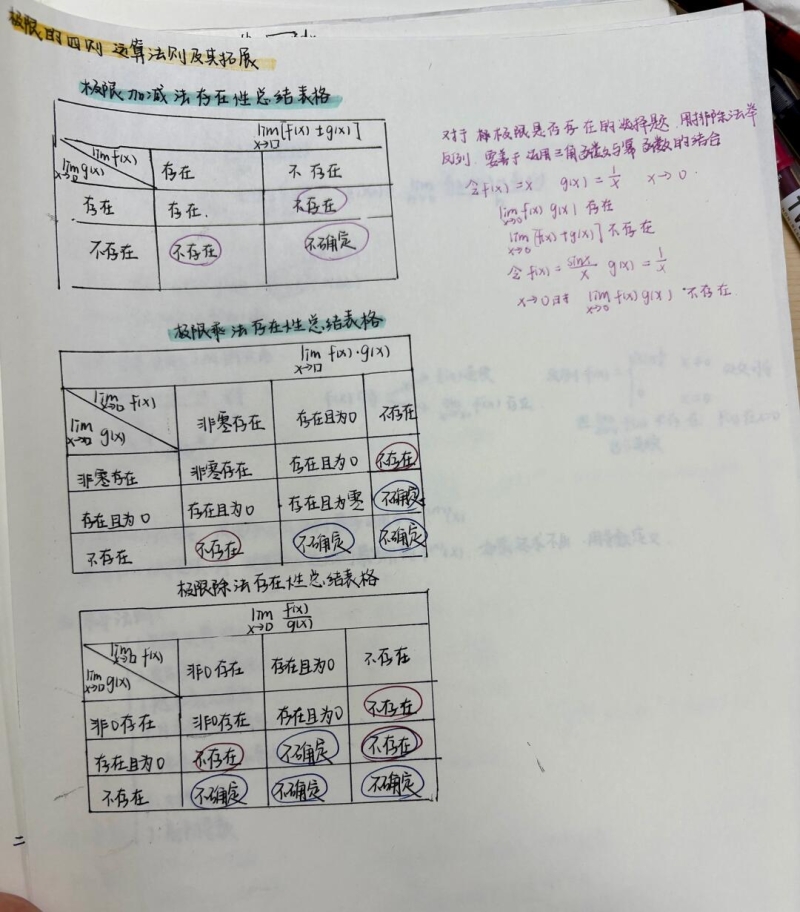 极限的四则运算法则及其拓展
极限加减法存在性总结表格
lim x→□ [f(x)±g(x)]
lim f(x) 存在 不存在
lim x→□ g(x)
存在 存在. 不存在
不存在 不存在 不确定
对于 极限是否存在的选择题 用排除法举
反例 要善于运用三角函数与幂函数的结合
令f(x)=x g(x)=1/x x→0
lim x→0 f(x) g(x) 存在
lim x→0 [f(x)+g(x)] 不存在
令 f(x)=sinx/x g(x)=1/x
x→0时 lim x→0 f(x)g(x) 不存在
极限乘法存在性总结表格
lim x→□ f(x)·g(x)
lim x→□ f(x) 非零存在 存在且为0 不存在
lim x→□ g(x)
非零存在 非零存在 存在且为0 不存在
存在且为0 存在且为0 存在且为零 不确定
不存在 不存在 不确定 不确定
极限除法存在性总结表格
lim x→□ f(x)/g(x)
lim x→□ f(x) 非0存在 存在且为0 不存在
lim x→□ g(x)
非0存在 非0存在 存在且为0 不存在
存在且为0 不存在 不确定 不存在
不存在 不确定 不确定 不确定
二